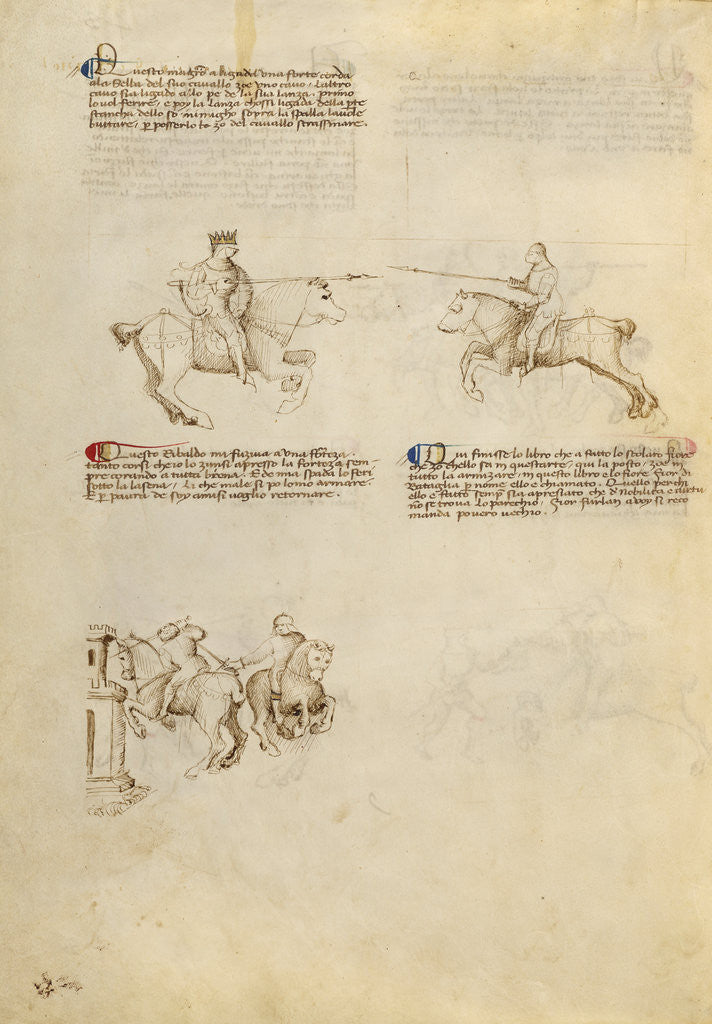 Questo magro a ligad una forte corda
ala sella del suo cavallo zoe uno cavo. Laltro
cavo sia ligado a lo pe de la sua lanza. primo
lo vol ferire, e poy la lanza chossi ligada della pte
stancha dello so inimigho sopra la spalla lavole
buttare, p posserlo to zo del cavallo strassinare.
Questo Ribaldo mi fuziva a una forteza.
tanto corsi che io lo zunsi apresso la forteza sem-
pre corando a tutta brena. E de mia spada lo feri
sotto la lasena, li che male si po lomo armare.
E p paura de soy amisi voglio retornare.
Qui finisse lo libro che a fatto lo scolaro fiore
che zo chello sa in quest arte, qui la posto, zoe in
tutto la armizare, in questo libro e lo fiore. Fior di
Bataglia p nome ello e chiamato. Quello perchi
ello e fatto semp sia apresiato che d nobilita e virtu
no se trova lo parechio, Fior furlan a voy si reco
manda povero vechio.